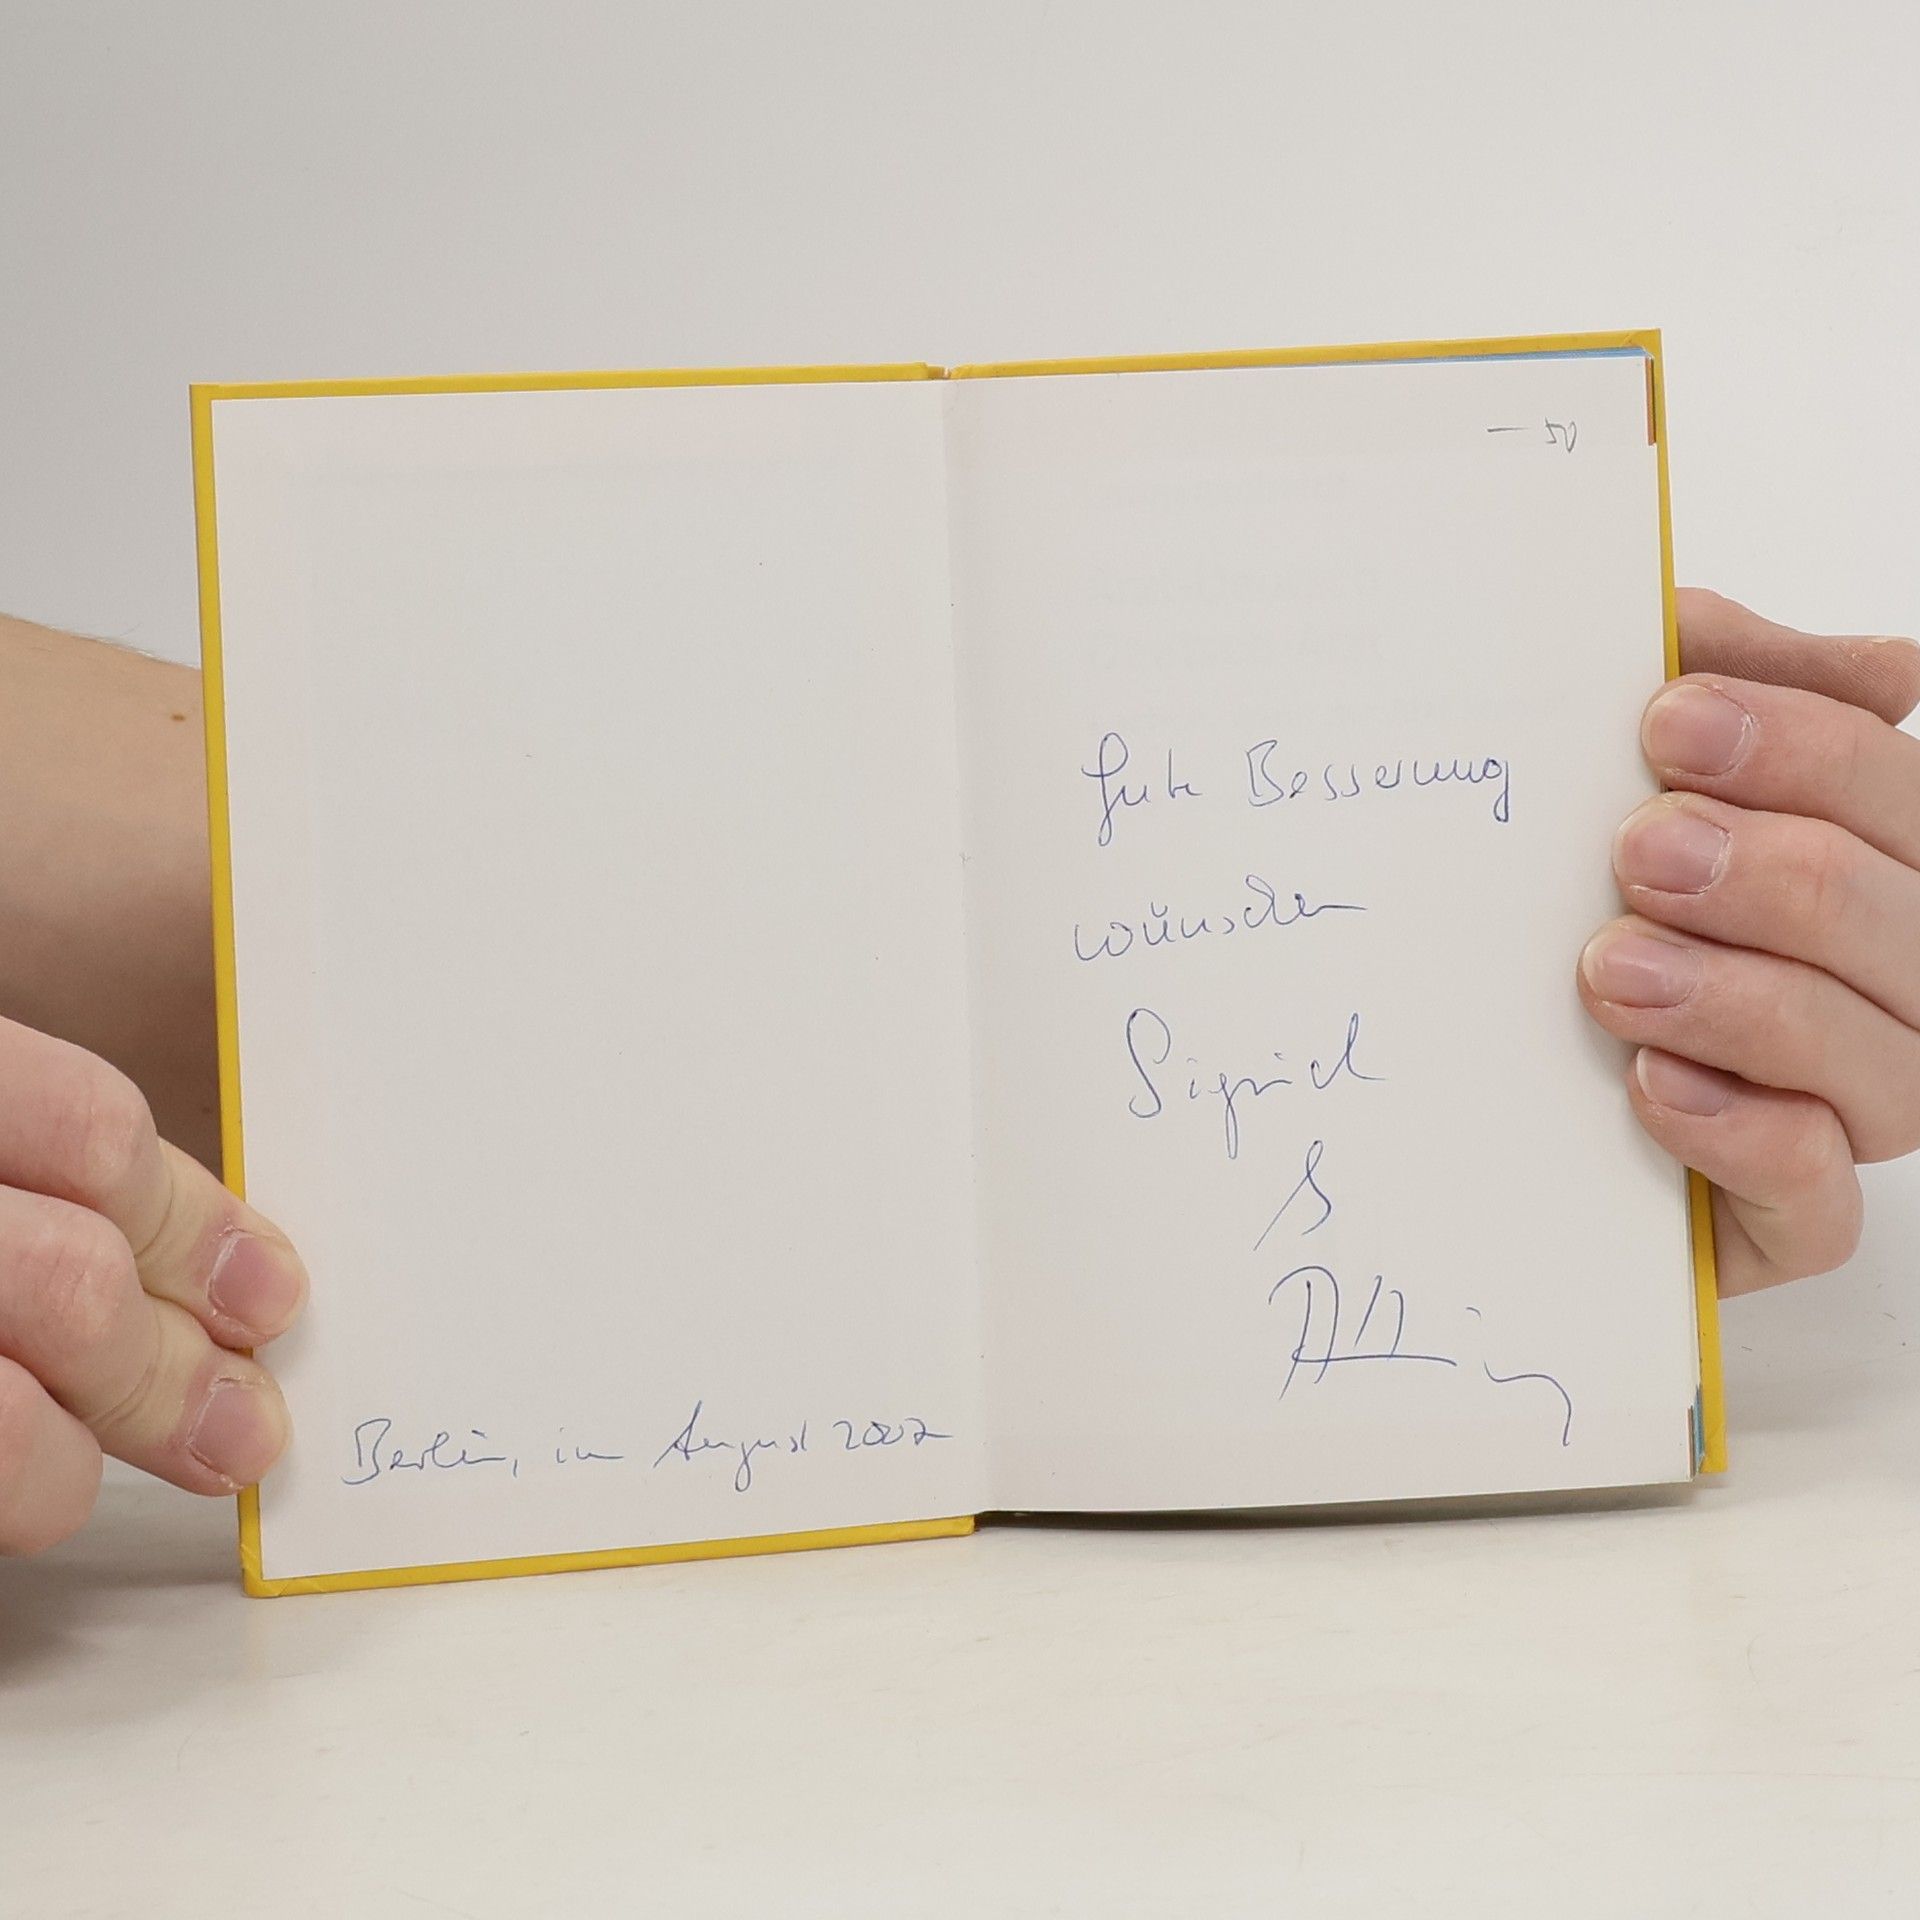 Berlin, im August 2002
— 50
Gute Besserung
wünschen
Sigrid
&